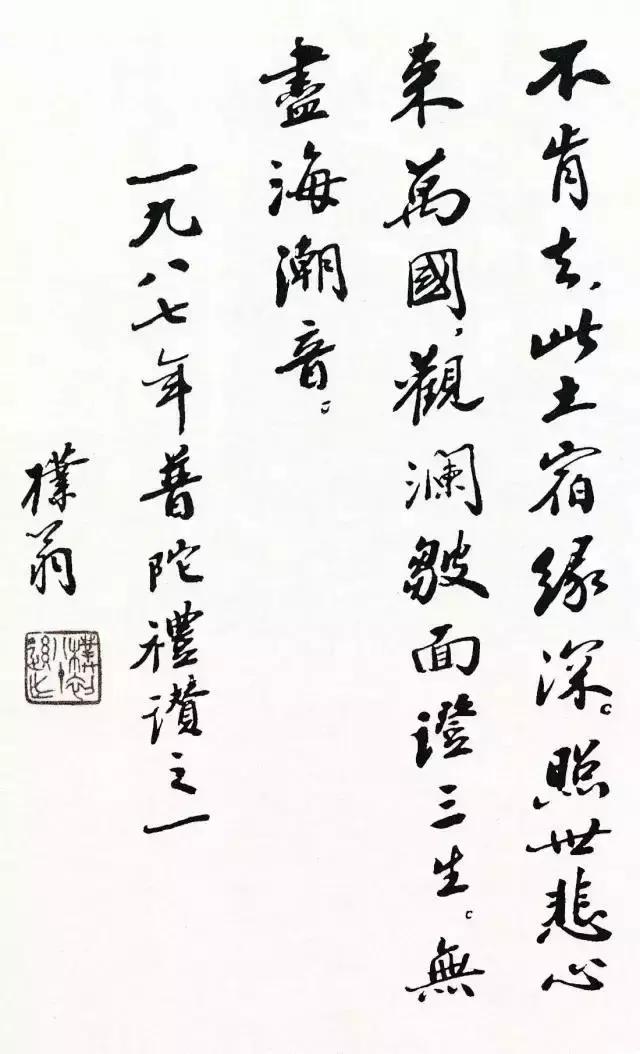 不肯去,此土宿缘深。照世悲心
来萬國,觀澜皺面證三生。無
盡海潮音。
一九八七年普陀禮讃之一
樸翁